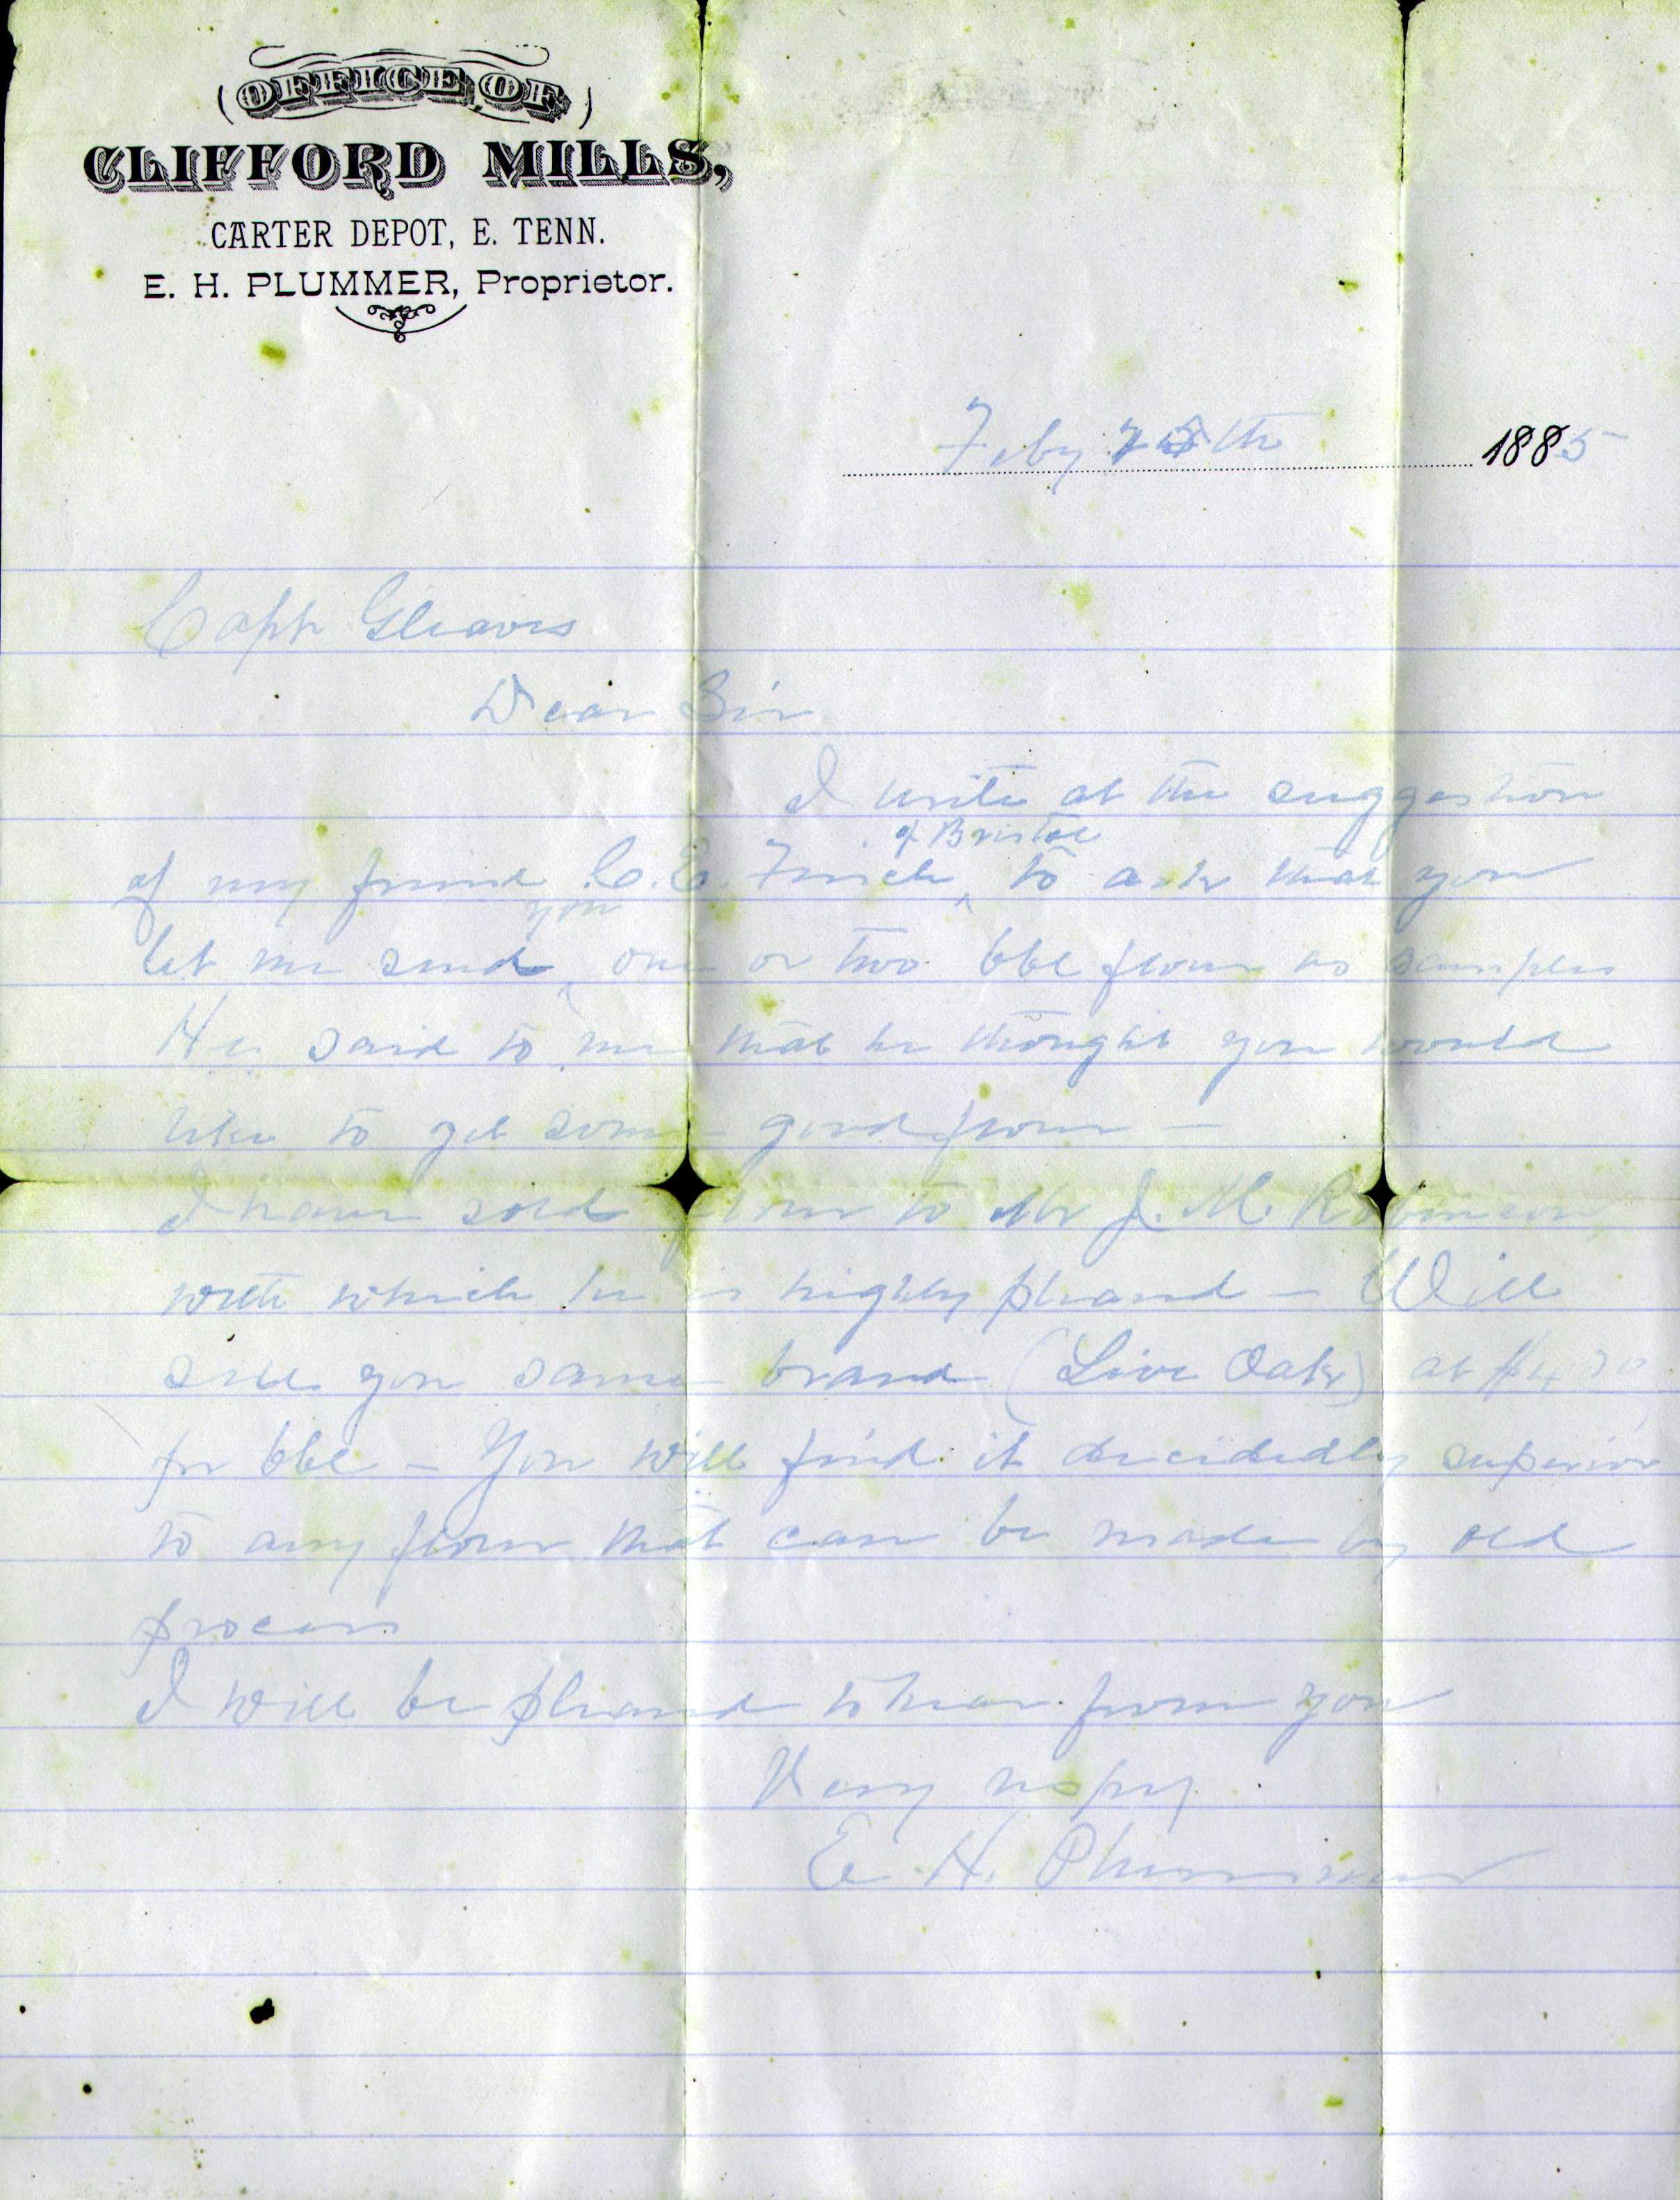 OFFICE OF
CLIFFORD MILLS,
CARTER DEPOT, E. TENN.
E. H. PLUMMER, Proprietor.
Feby th 1885
Capt Gleaves
Dear Sir
I write at the suggestion
of my friend C. E. Finch, of Bristol to ask that you
let me send you one or two bbl flour as samples
He said to me that he thought you would
like to get some good flour —
I have sold flour to Mr J. M. Robinson,
with which he is highly pleased — Will
sell you same brand (Live Oak) at
per bbl — You will find it decidedly superior
to any flour that can be made by old
process
I will be pleased to hear from you
Very respy
E. H. Plummer